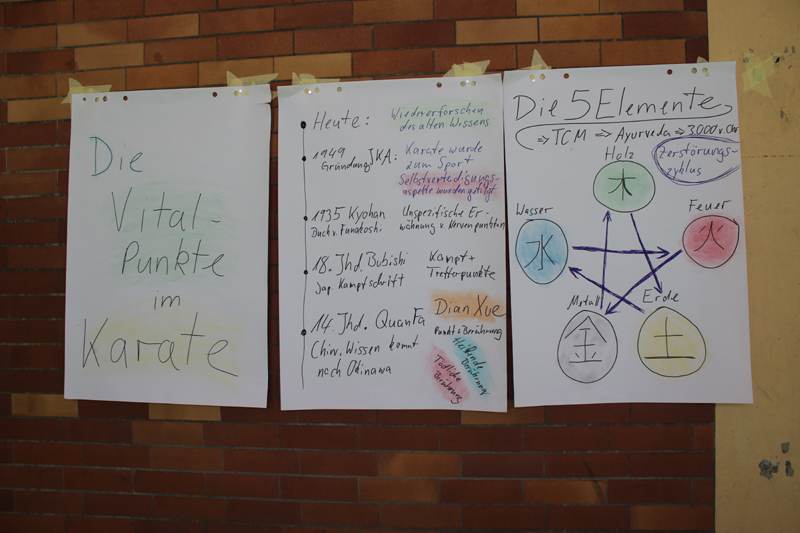 Die
Vital-
Punkte
im
Karate
Heute: Wiedererforschen
des alten Wissens
1949 JKA: Karate wurde
Gründung zum Sport
Selbstverteidigungs-
aspekte wurden getilgt
1935 Kyohan Unspezifische Er-
Buch v. Funakosh. wähnung v. Nervenpunkten
18. Jhd. Bubishi Kampf +
Jap. Kampfschrift Trefferpunkte
14. Jhd. QuanFa Dian Xue
Chin. Wissen kommt Punkt + Berührung
nach Odinawa
Heilende
Berührung
Tödliche
Berührung
Die 5 Elemente
⇒ TCM ⇒ Ayurveda ⇒ 3000 v. Chr
Zerstörungs-
zyklus
Holz
木
Wasser
水
Feuer
火
Metall
金
Erde
土